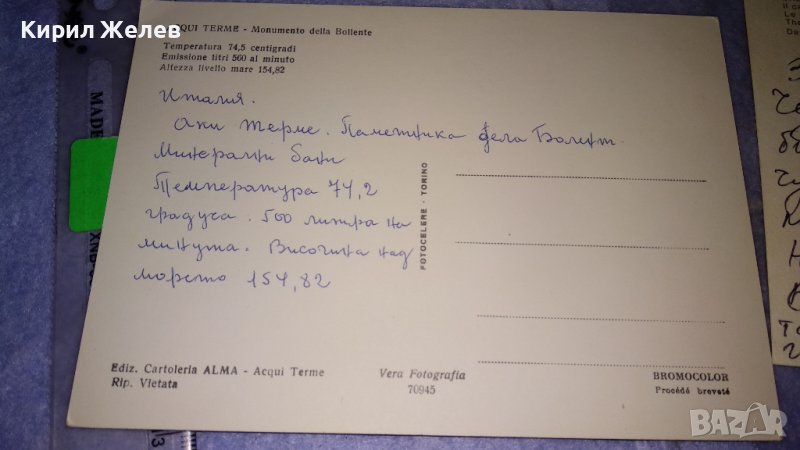 Кирил Желев
ACQUI TERME - Monumento della Bollente
Temperatura 74,5 centigradi
Emissione litri 560 al minuto
Altezza livello mare 154,82
Италия.
Аки Терме. Паметника дела Болит.
Минерални бани
Температура 74,2
градуса. 500 литра на
минута. Височина над
морето 154,82
FOTOCELERE - TORINO
Ediz. Cartoleria ALMA - Acqui Terme
Rip. Vietata
Vera Fotografia
70945
BROMOCOLOR
Procédé breveté
MADE
BAZAR
bg